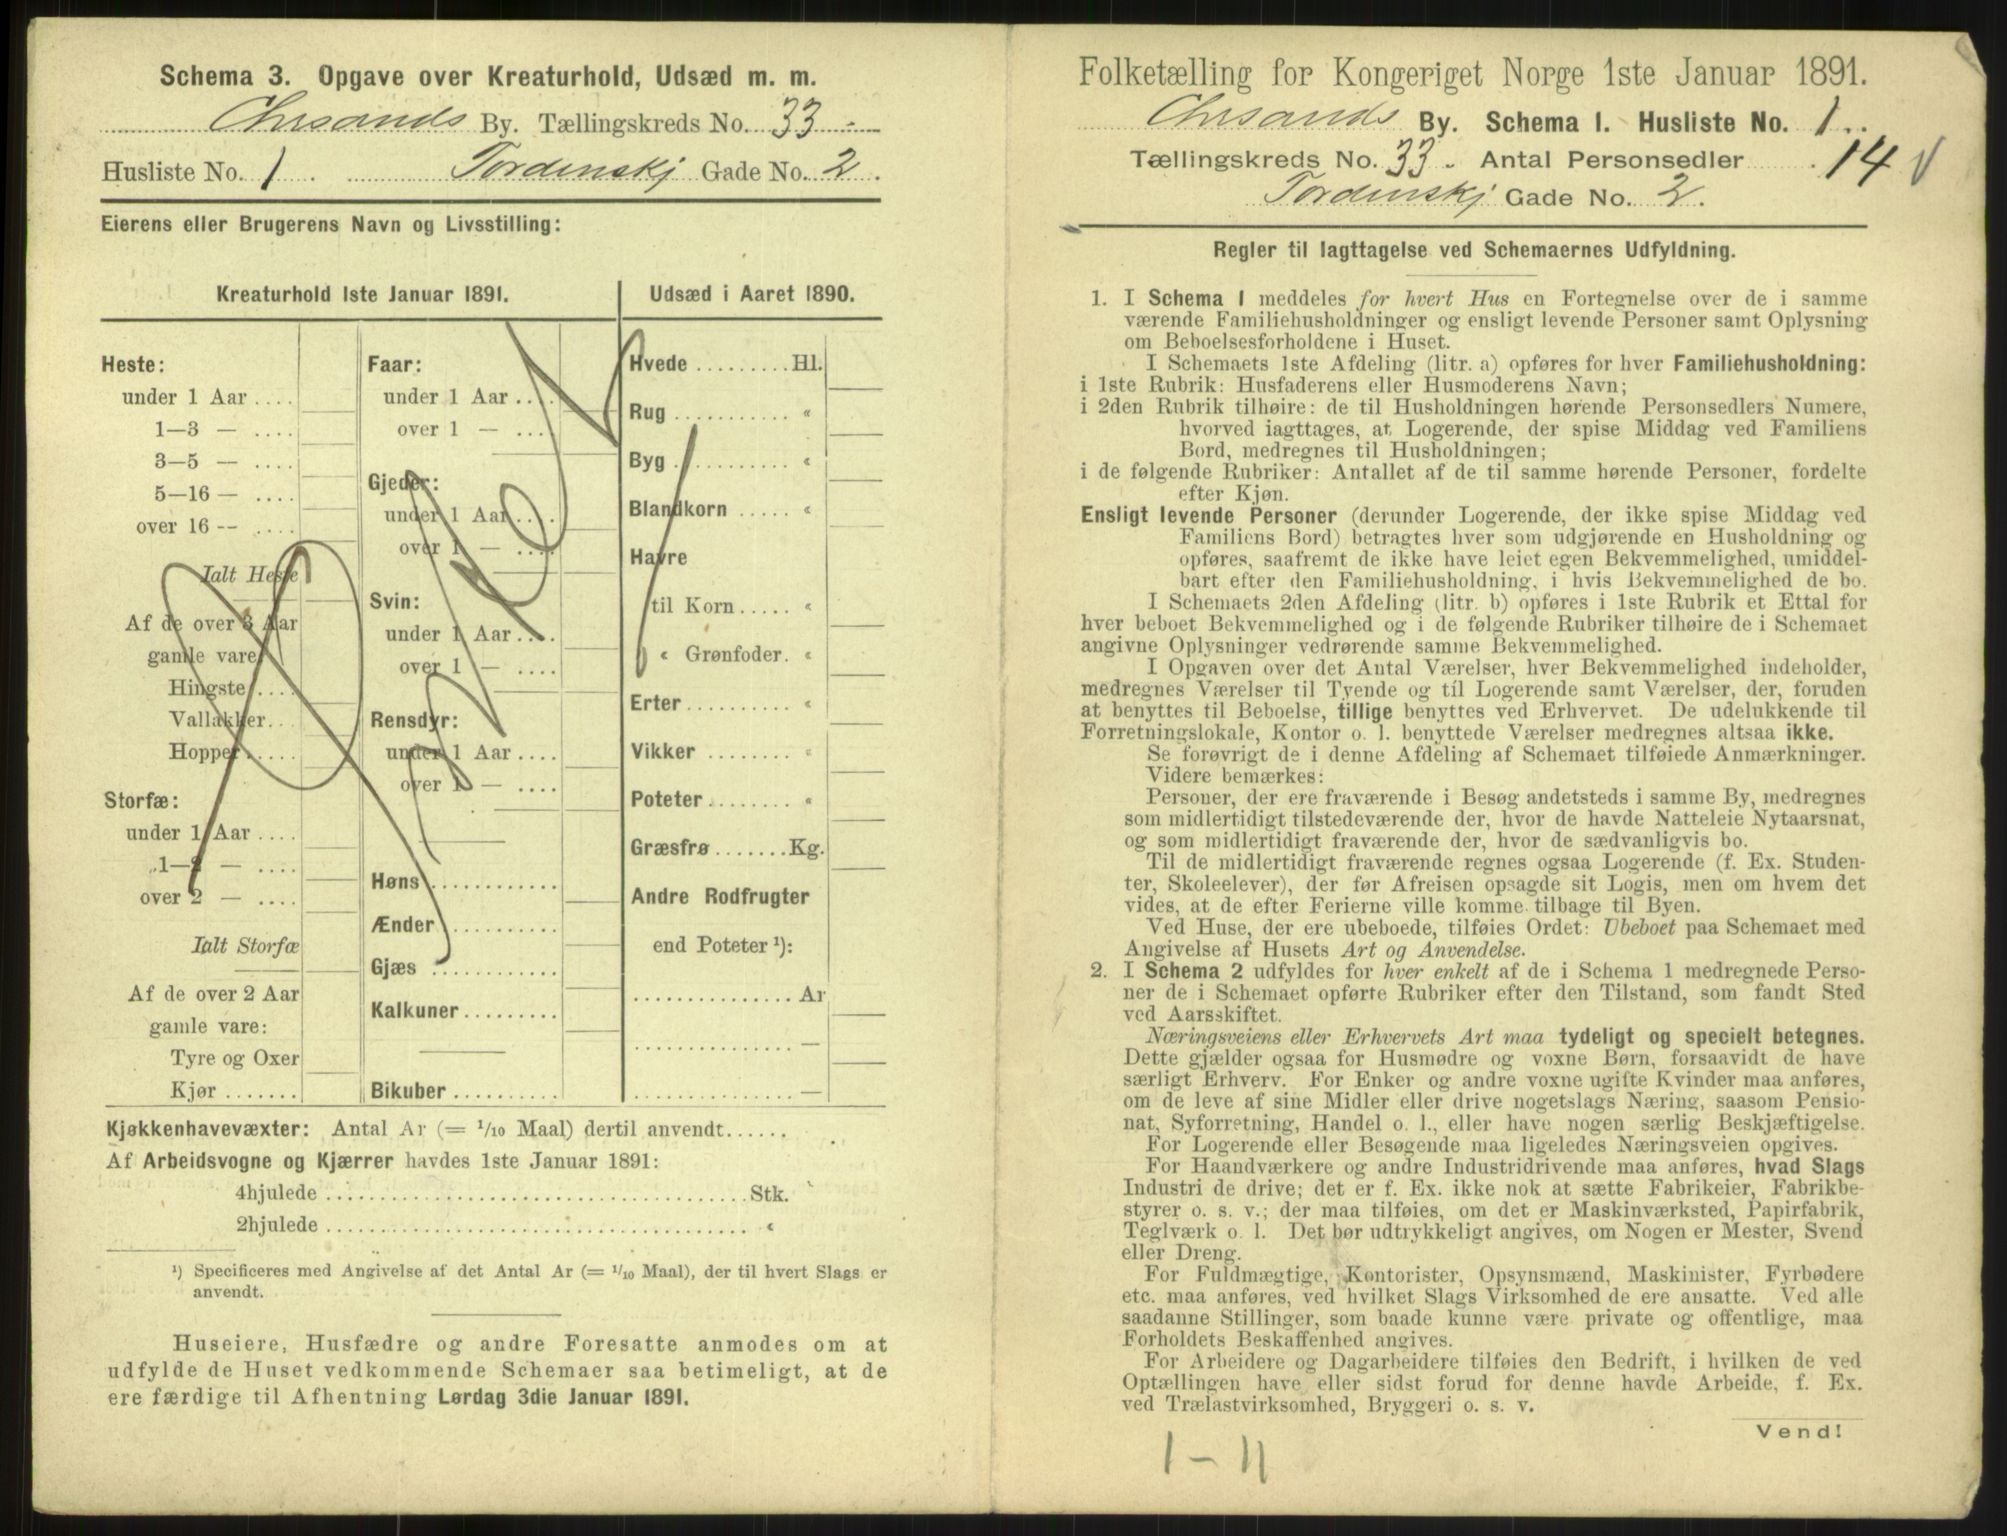 Schema 3. Opgave over Kreaturhold, Udsæd m. m.
Chrsands By. Tællingskreds No. 33.
Husliste No. 1. Tordenskj Gade No. 2.
Eierens eller Brugerens Navn og Livsstilling:
Kreaturhold 1ste Januar 1891.
Heste:
under 1 Aar ....
1—3 — ....
3—5 — ....
5—16 — ....
over 16 — ....
Ialt Heste
Af de over 3 Aar
gamle vare:
Hingste ....
Vallakker...
Hopper.....
Storfæ:
under 1 Aar ....
1—2 — ....
over 2 — ....
Ialt Storfæ
Af de over 2 Aar
gamle vare:
Tyre og Oxer
Kjør .......
Faar:
under 1 Aar ....
over 1 — ....
Gjeder:
under 1 Aar ....
over 1 — ....
Svin:
under 1 Aar ....
over 1 — ....
Rensdyr:
under 1 Aar ....
over 1 — ....
Høns ............
Ænder ...........
Gjæs ............
Kalkuner.........
Bikuber ..........
Udsæd i Aaret 1890.
Hvede .........Hl.
Rug ........... «
Byg ........... «
Blandkorn ..... «
Havre
til Korn ..... «
« Grønfoder. «
Erter.......... «
Vikker ........ «
Poteter ........ «
Græsfrø .......Kg.
Andre Rodfrugter
end Poteter ¹):
............... Ar
............... —
............... —
Kjøkkenhavevæxter: Antal Ar (= 1/10 Maal) dertil anvendt......
Af Arbeidsvogne og Kjærrer havdes 1ste Januar 1891:
4hjulede ....................................Stk.
2hjulede .................................... «
¹) Specificeres med Angivelse af det Antal Ar (= 1/10 Maal), der til hvert Slags er
anvendt.
Huseiere, Husfædre og andre Foresatte anmodes om at
udfylde de Huset vedkommende Schemaer saa betimeligt, at de
ere færdige til Afhentning Lørdag 3die Januar 1891.
Folketælling for Kongeriget Norge 1ste Januar 1891.
Chrsands By. Schema 1. Husliste No. 1.
Tællingskreds No. 33. Antal Personsedler 14 V
Tordenskj Gade No. 2.
Regler til Iagttagelse ved Schemaernes Udfyldning.
1. I Schema 1 meddeles for hvert Hus en Fortegnelse over de i samme
værende Familiehusholdninger og ensligt levende Personer samt Oplysning
om Beboelsesforholdene i Huset.
I Schemaets 1ste Afdeling (litr. a) opføres for hver Familiehusholdning:
i 1ste Rubrik: Husfaderens eller Husmoderens Navn;
i 2den Rubrik tilhøire: de til Husholdningen hørende Personsedlers Numere,
hvorved iagttages, at Logerende, der spise Middag ved Familiens
Bord, medregnes til Husholdningen;
i de følgende Rubriker: Antallet af de til samme hørende Personer, fordelte
efter Kjøn.
Ensligt levende Personer (derunder Logerende, der ikke spise Middag ved
Familiens Bord) betragtes hver som udgjørende en Husholdning og
opføres, saafremt de ikke have leiet egen Bekvemmelighed, umiddel-
bart efter den Familiehusholdning, i hvis Bekvemmelighed de bo.
I Schemaets 2den Afdeling (litr. b) opføres i 1ste Rubrik et Ettal for
hver beboet Bekvemmelighed og i de følgende Rubriker tilhøire de i Schemaet
angivne Oplysninger vedrørende samme Bekvemmelighed.
I Opgaven over det Antal Værelser, hver Bekvemmelighed indeholder,
medregnes Værelser til Tyende og til Logerende samt Værelser, der, foruden
at benyttes til Beboelse, tillige benyttes ved Erhvervet. De udelukkende til
Forretningslokale, Kontor o. l. benyttede Værelser medregnes altsaa ikke.
Se forøvrigt de i denne Afdeling af Schemaet tilføiede Anmærkninger.
Videre bemærkes:
Personer, der ere fraværende i Besøg andetsteds i samme By, medregnes
som midlertidigt tilstedeværende der, hvor de havde Natteleie Nytaarsnat,
og som midlertidigt fraværende der, hvor de sædvanligvis bo.
Til de midlertidigt fraværende regnes ogsaa Logerende (f. Ex. Studen-
ter, Skoleelever), der før Afreisen opsagde sit Logis, men om hvem det
vides, at de efter Ferierne ville komme tilbage til Byen.
Ved Huse, der ere ubeboede, tilføies Ordet: Ubeboet paa Schemaet med
Angivelse af Husets Art og Anvendelse.
2. I Schema 2 udfyldes for hver enkelt af de i Schema 1 medregnede Perso-
ner de i Schemaet opførte Rubriker efter den Tilstand, som fandt Sted
ved Aarsskiftet.
Næringsveiens eller Erhvervets Art maa tydeligt og specielt betegnes.
Dette gjælder ogsaa for Husmødre og voxne Børn, forsaavidt de have
særligt Erhverv. For Enker og andre voxne ugifte Kvinder maa anføres,
om de leve af sine Midler eller drive nogetslags Næring, saasom Pensio-
nat, Syforretning, Handel o. l., eller have nogen særlig Beskjæftigelse.
For Logerende eller Besøgende maa ligeledes Næringsveien opgives.
For Haandværkere og andre Industridrivende maa anføres, hvad Slags
Industri de drive; det er f. Ex. ikke nok at sætte Fabrikeier, Fabrikbe-
styrer o. s. v.; der maa tilføies, om det er Maskinværksted, Papirfabrik,
Teglværk o. l. Det bør udtrykkeligt angives, om Nogen er Mester, Svend
eller Dreng.
For Fuldmægtige, Kontorister, Opsynsmænd, Maskinister, Fyrbødere
etc. maa anføres, ved hvilket Slags Virksomhed de ere ansatte. Ved alle
saadanne Stillinger, som baade kunne være private og offentlige, maa
Forholdets Beskaffenhed angives.
For Arbeidere og Dagarbeidere tilføies den Bedrift, i hvilken de ved
Optællingen have eller sidst forud for denne havde Arbeide, f. Ex.
ved Trælastvirksomhed, Bryggeri o. s. v.
Vend!
1 - 11